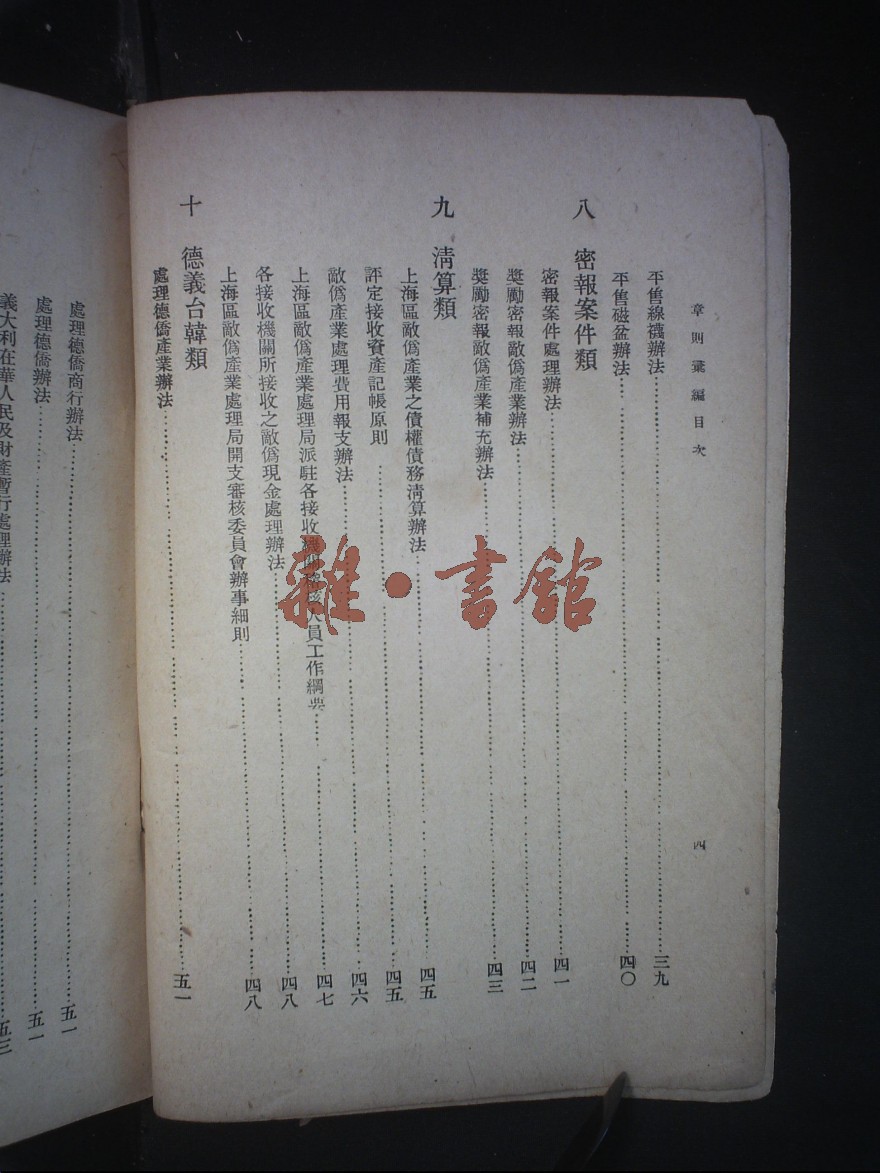 章則彙編目次
四
平售線襪辦法……三九
平售磁盆辦法……四〇
八 密報案件類
密報案件處理辦法……四一
獎勵密報敵僞產業辦法……四二
獎勵密報敵僞產業補充辦法……四三
九 清算類
上海區敵僞產業之債權債務清算辦法……四五
評定接收資產記帳原則……四五
敵僞產業處理費用報支辦法……四六
上海區敵僞產業處理局派駐各接收機關稽核人員工作綱要……四七
各接收機關所接收之敵僞現金處理辦法……四八
上海區敵僞產業處理局開支審核委員會辦事細則……四八
十 德義台韓類
處理德僑產業辦法……五一
處理德僑商行辦法……五一
處理德僑辦法……五一
義大利在華人民及財產暫行處理辦法……五三
雜·書館